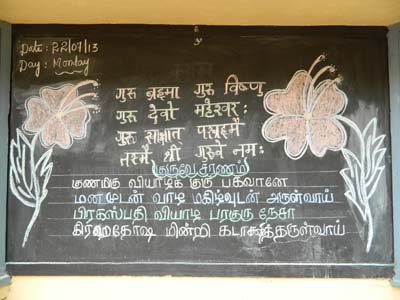 Date: 22/07/13
Day: Monday
गुरु ब्रह्मा गुरु विष्णु
गुरु देवो महेश्वर:
गुरु साक्षात परब्रह्मै
तस्मै श्री गुरुवे नम:
குருவே சரணம்
குணமிகு வியாழக் குரு பகவானே
மனமுடன் வாழ மகிழ்வுடன் அருள்வாய்
பிரகஸ்பதி வியாழ பரகுரு நேசா
கிரகதோஷ மின்றி கடாக்ஷித்தருள்வாய்